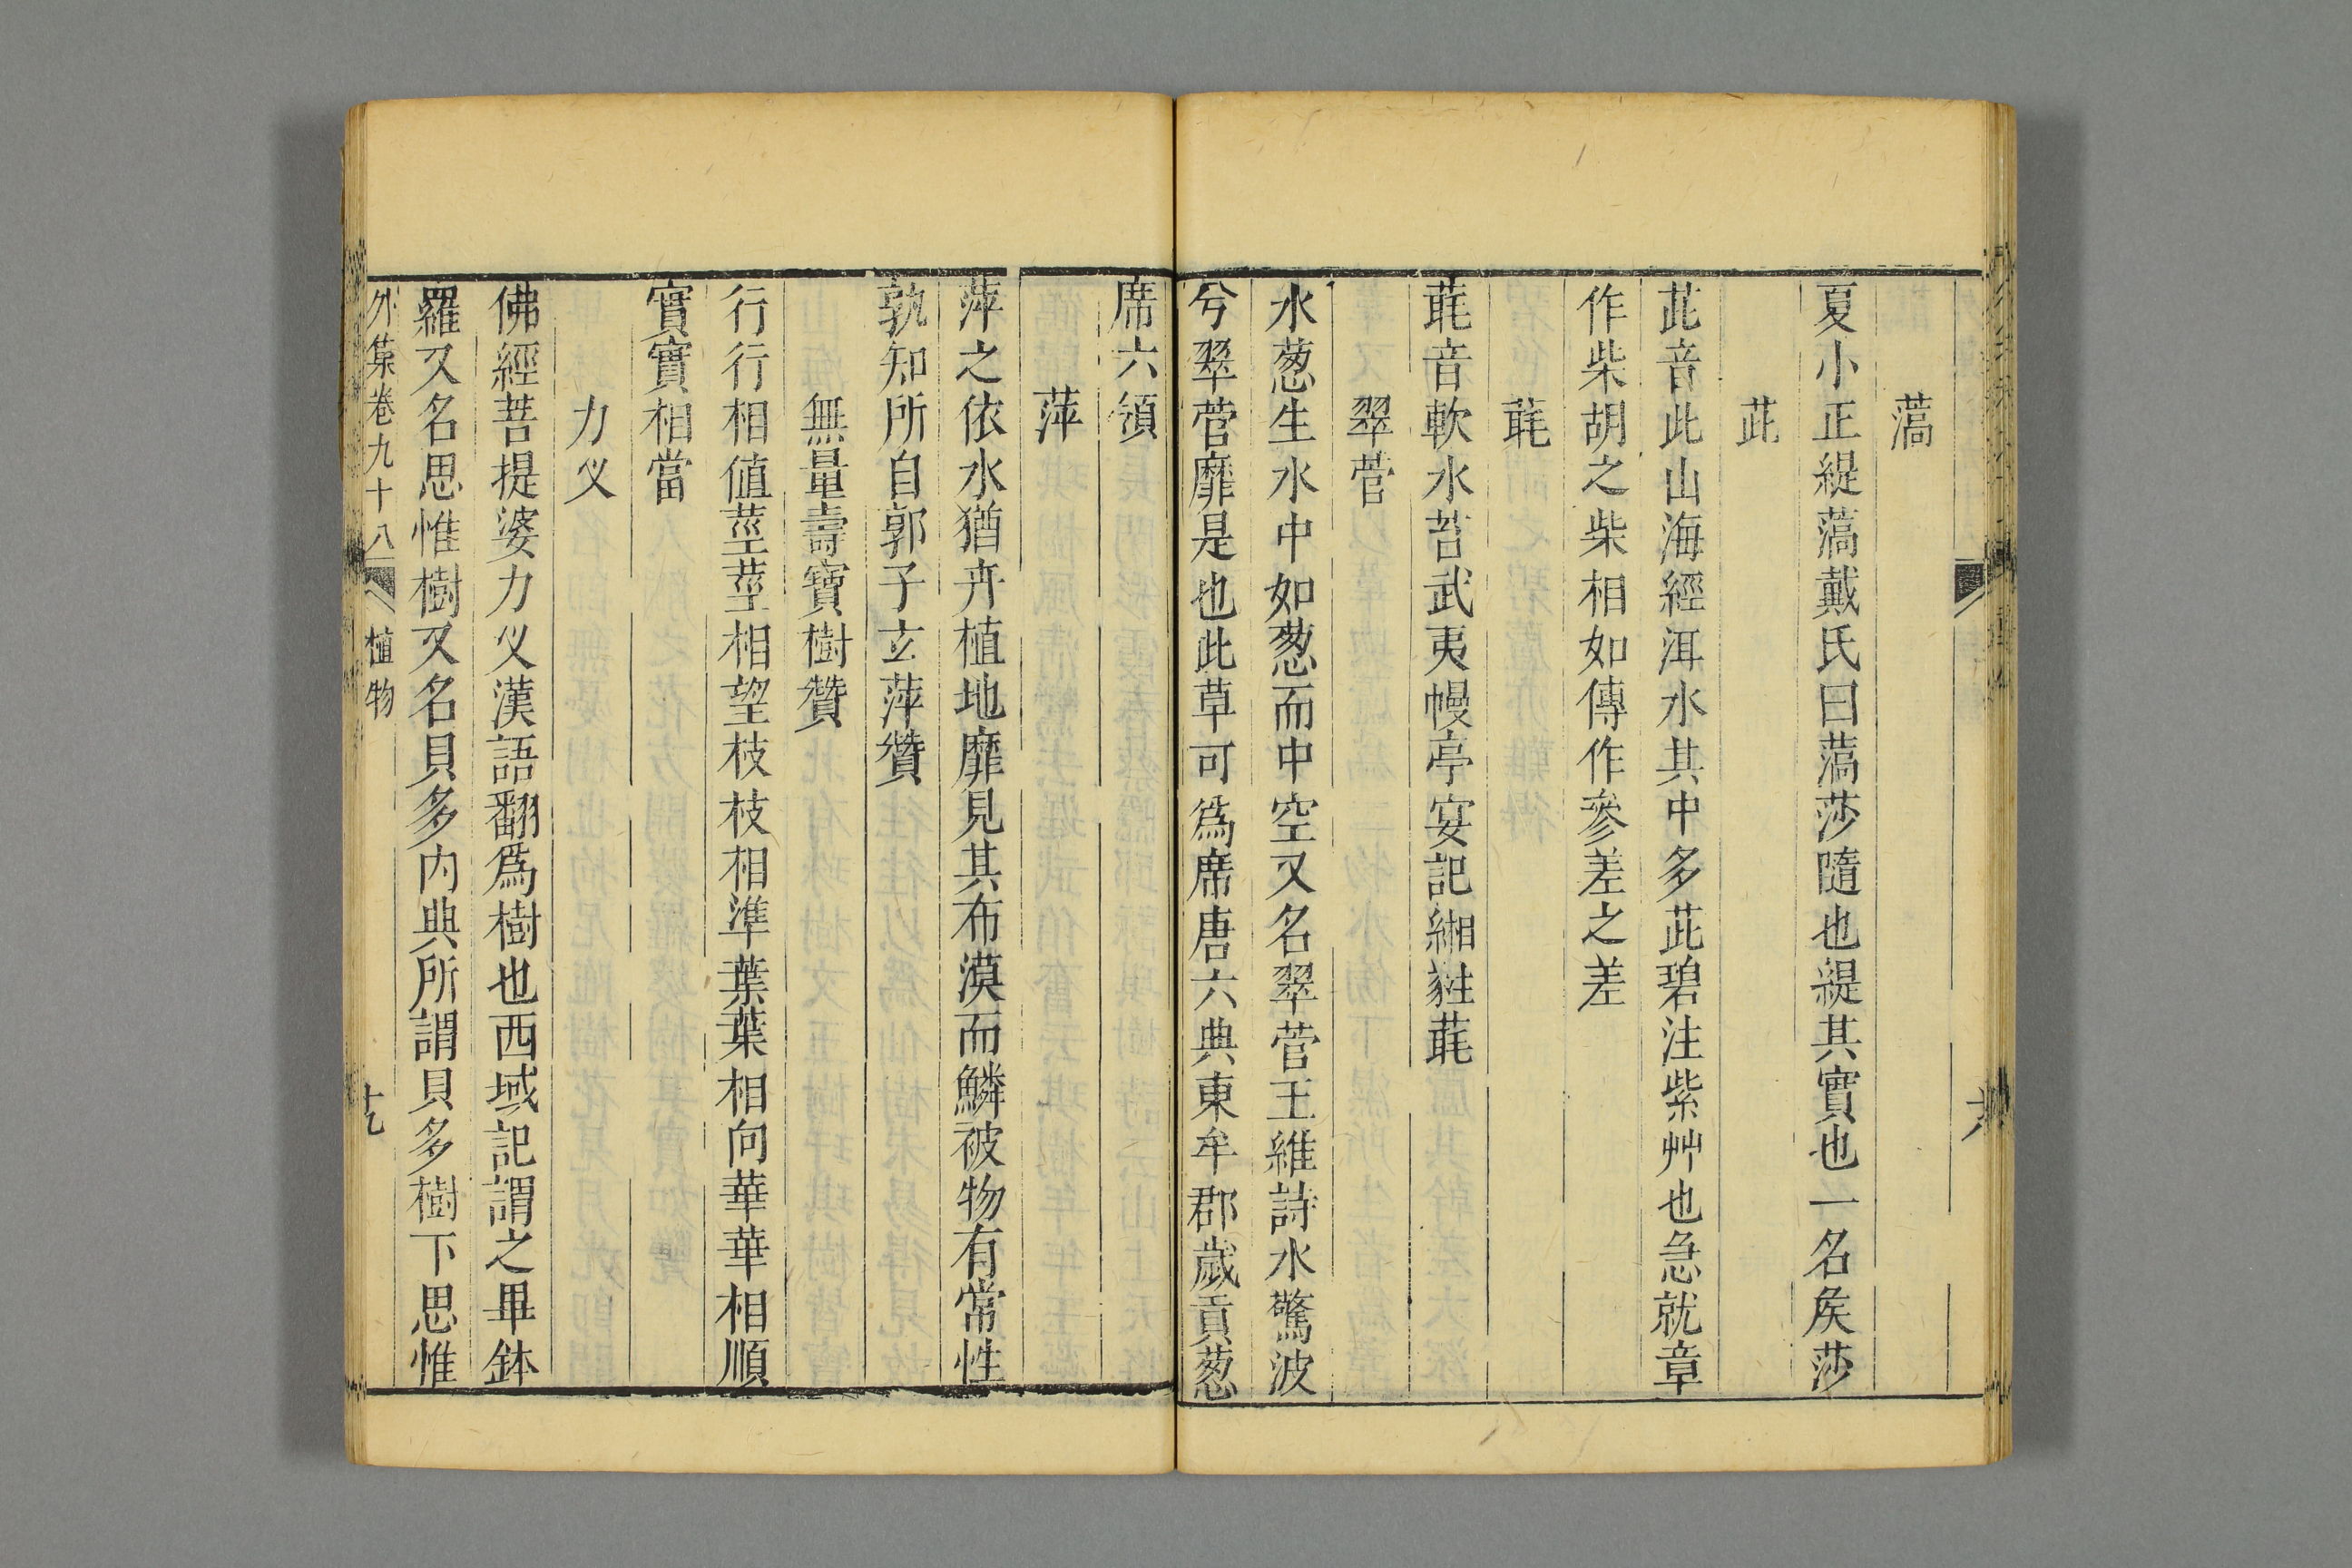 薃
夏小正緹薃戴氏曰薃莎隨也緹其實也一名矦莎
茈
茈音此山海經洱水其中多茈碧注紫艸也急就章
作柴胡之柴相如傳作參差之差
㲨
音軟水苔武夷幔亭宴記緗
翠菅
水葱生水中如葱而中空又名翠菅王維詩水驚波
兮翠菅靡是也此草可爲席唐六典東牟郡歲貢葱
席六領
萍
萍之依水猶卉植地靡見其布漠而鱗被物有常性
孰知所自郭子玄萍贊
無量壽寶樹贊
行行相値莖莖相望枝枝相準葉葉相向華華相順
實實相當
力义
佛經菩提婆力义漢語翻爲樹也西域記謂之畢鉢
羅又名思惟樹又名貝多内典所謂貝多樹下思惟
外集卷九十八 植物 十九